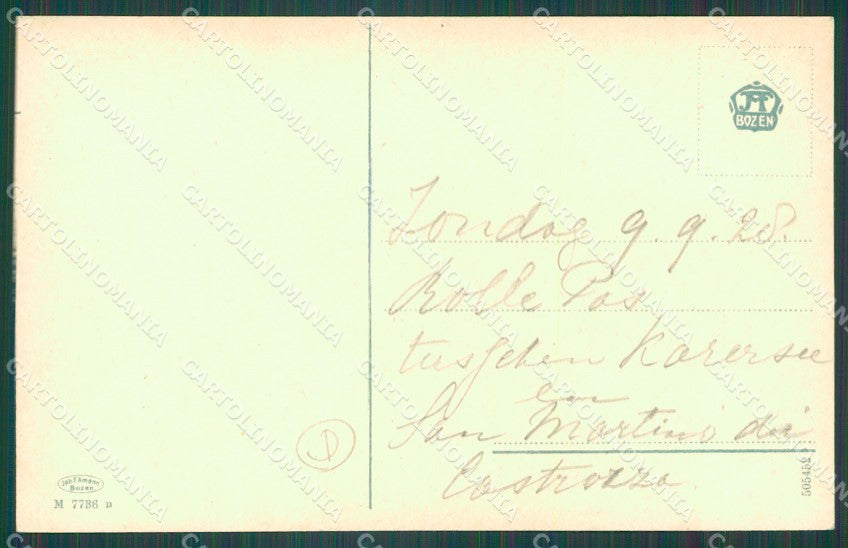 JFA
BOZEN
Zondag 9.9.28.
Rolle Pas
tusschen Karersee
en
San Martino di
Castrozza
Joh. F. Amann
Bozen
M 7736 D
505452
CARTOLINOMANIA